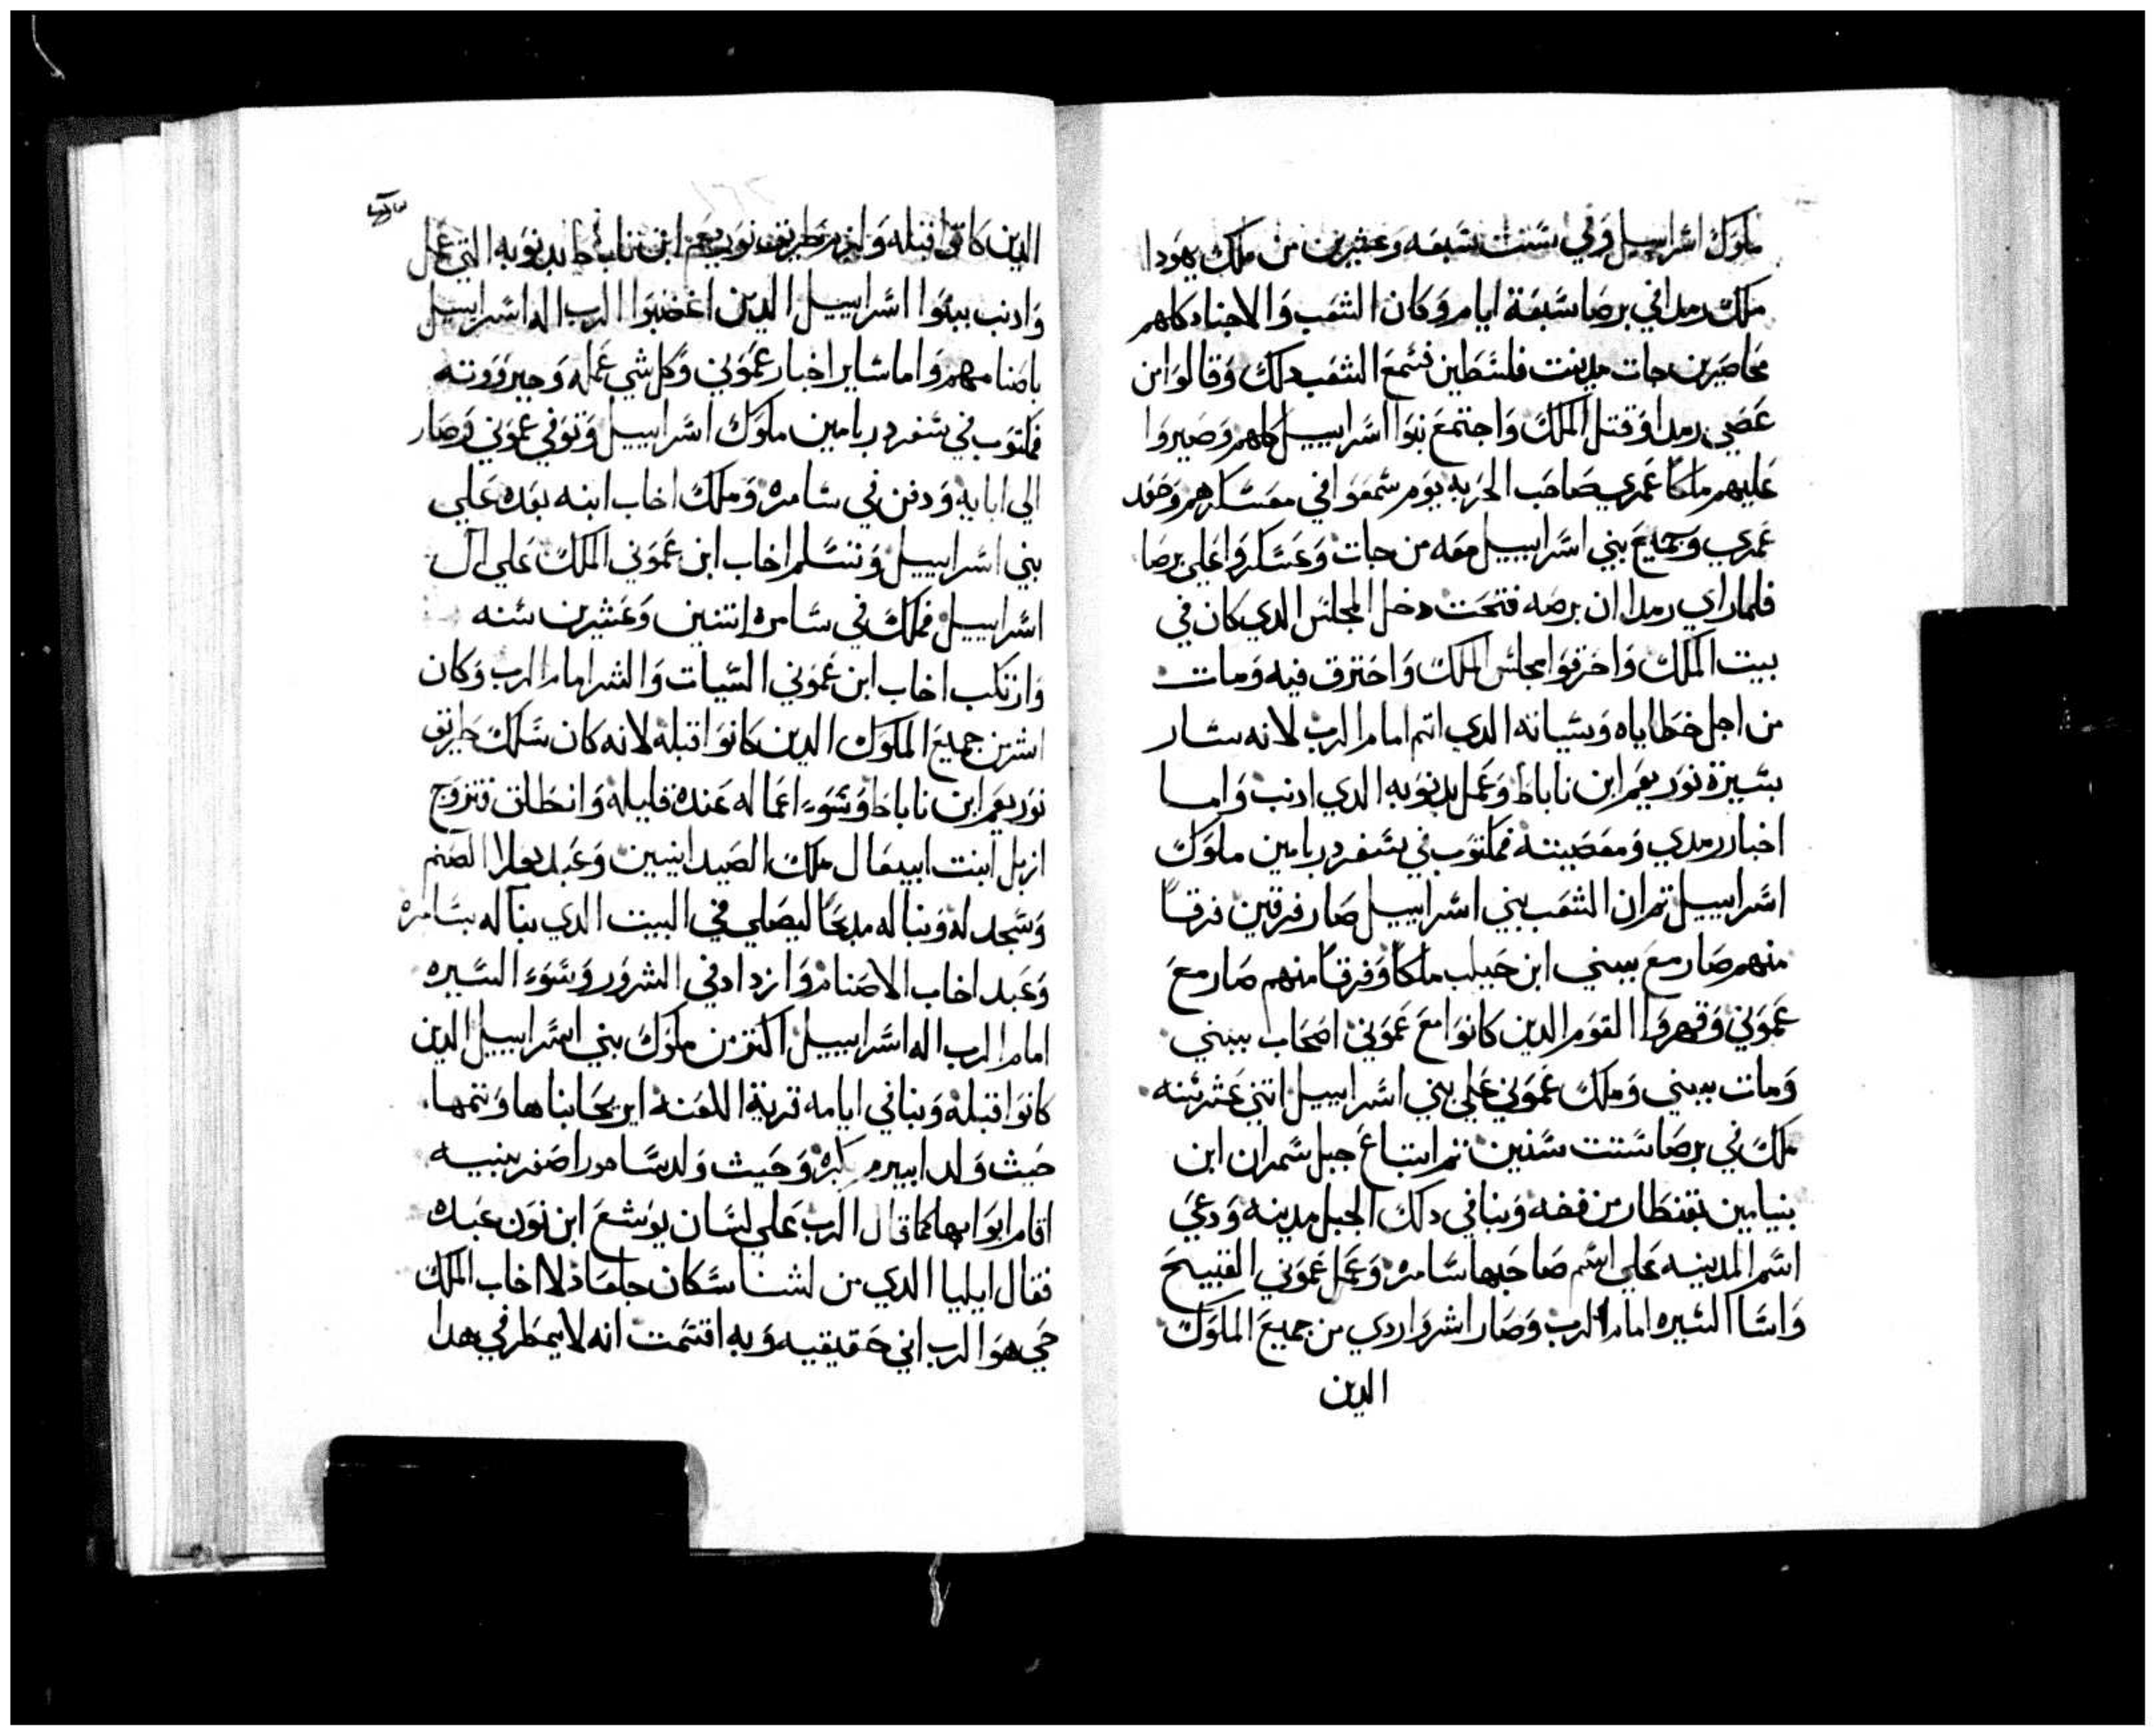 ملوك اسراييل وفي سنت سبعه وعشرين من ملك يهودا
ملك رمدا في برصا سبعة ايام وكان الشعب والاجناد كلهم
محاصرين جات مدينت فلسطين فسمع الشعب دلك وقالوا من
عصي رمدا وقتل الملك واجتمع بنوا اسراييل كلهم وصيروا
عليهم ملكا عمري صاحب الحربه يوم سمعوا في معسكرهم وصعد
عمري وجميع بني اسراييل معه من جات وعسكروا علي برصا
فلما راي رمدا ان برصه فتحت دخل المجلس الدي كان في
بيت الملك واحرقوا مجلس الملك واحترق فيه ومات
من اجل خطاياه وسياته الدي اتم امام الرب لانه سار
بسيرة نوربعم ابن ناباط وعمل بدنوبه الدي ادنب واما
اخبار رمدي ومعصيته فمكتوب في سفر دبريامين ملوك
اسراييل تم ان الشعب بني اسراييل صار فرقين فرقا
منهم صار مع بيبني ابن حبيلب ملكا وفرقا منهم صار مع
عموني وقهروا القوم الدين كانوا مع عموني اصحاب بيبني
ومات بيبني وملك عموني علي بني اسراييل اتني عشر سنه
ملك في برصا ستت سنين تم ابتاع جبل سمران ابن
بنيامين بقنطار من فضه وبنا في دلك الجبل مدينه ودعي
اسم المدينه علي اسم صاحبها سامره وعمل عموني القبيح
واسا السيره امام الرب وصار اشر واردي من جميع الملوك
الدين
الدين كانوا قبله ولزم طريق نوربعم ابن ناباط بدنوبه التي عمل
وادنب ببنوا اسراييل الدين اغضبوا الرب اله اسراييل
باصنامهم واما ساير اخبار عموني وكل شي عمله وجبروته
فمكتوب في سفر دبريامين ملوك اسراييل وتوفي عموني وصار
الي ابايه ودفن في سامره وملك اخاب ابنه بعده علي
بني اسراييل وتسلم اخاب ابن عموني الملك علي ال
اسراييل فملك في سامره اتنين وعشرين سنه
وارتكب اخاب ابن عموني السيات والشر امام الرب وكان
اشر من جميع الملوك الدين كانوا قبله لانه كان سلك طريق
نوربعم ابن ناباط وسوء اعماله عنده قليله وانطلق فتزوج
ازبل ابنت ابيعال ملك الصيدانيين وعبد بعلا الصنم
وسجد له وبنا له مدبحا ليصلي في البيت الدي بنا له بسامره
وعبد اخاب الاصنام وازداد في الشرور وسوء السيره
امام الرب اله اسراييل اكتر من ملوك بني اسراييل الدين
كانوا قبله وبنا في ايامه قرية اللعنة ايريحا بناها وتمها
حيث ولد ابيرم بكره وحيث ولد سامورا اصغر بنيه
اقام ابوابها كما قال الرب علي لسان يوشع ابن نون عبده
فقال ايليا الدي من لشنا سكان جلعاد لاخاب الملك
حي هو الرب اني حقيقيه وبه اقسمت انه لا يمطر في هدا